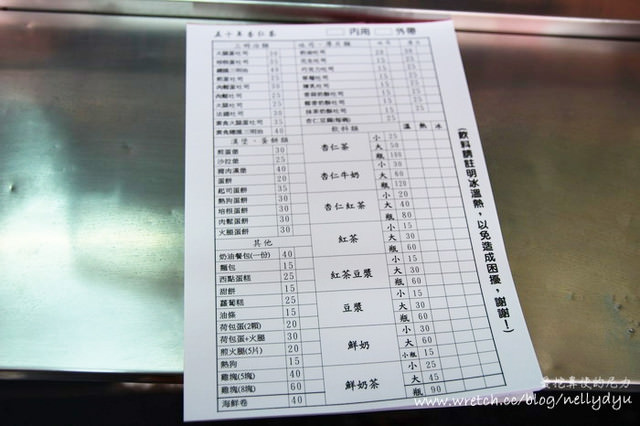 五十年杏仁茶 □內用 □外帶
三明治類
火腿蛋吐司
培根蛋吐司
總匯三明治
煎蛋吐司
肉鬆蛋吐司
肉鬆吐司
火腿吐司 25
法國吐司 30
素食火腿蛋吐司 35
素食總匯三明治 40
漢堡、蛋餅類
煎蛋堡 30
沙拉堡 25
豬肉滿堡 40
蛋餅 20
起司蛋餅 35
熱狗蛋餅 30
培根蛋餅 30
肉鬆蛋餅 30
火腿蛋餅 30
其他
奶油餐包(一份) 40
麵包 15
西點蛋糕 25
甜餅 15
蘿蔔糕 25
油條 15
荷包蛋(2顆) 20
荷包蛋+火腿 30
煎火腿(5片) 20
熱狗 15
雞塊(5塊) 40
雞塊(8塊) 60
海鮮卷 40
吐司、厚片類
奶油吐司
花生吐司
巧克力吐司
草莓吐司
煉乳吐司
香蒜奶酥吐司
椰香奶酥吐司
抹茶奶酥吐司
杏仁豆腐(每碗) 25
飲料類 溫 熱 冰
杏仁茶 小 25
大 50
瓶 100
杏仁牛奶 小 30
大 60
瓶 120
杏仁紅茶 小 20
大 40
瓶 80
紅茶 小 15
大 30
瓶 60
紅茶豆漿 小 15
大 30
瓶 60
豆漿 小 15
大 30
瓶 60
鮮奶 小 30
大 60
小瓶 15
鮮奶茶 小 25
大 45
瓶 90
(飲料請註明冰溫熱，以免造成困擾，謝謝！)
www.wretch.cc/blog/nellydyu